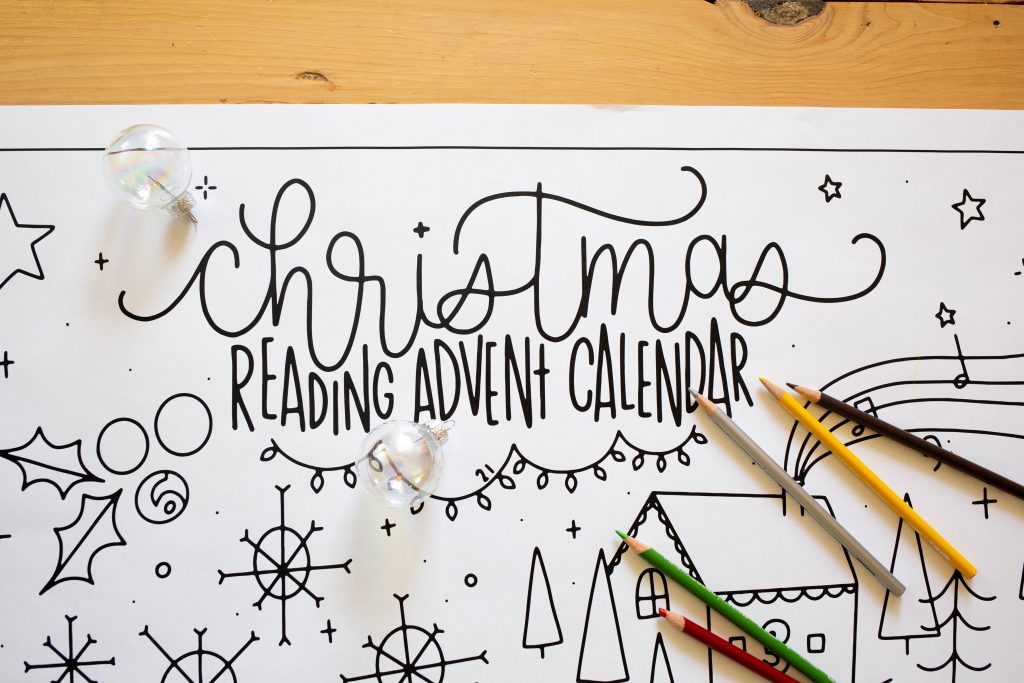 christmas
READING ADVENT CALENDAR
21
5
3